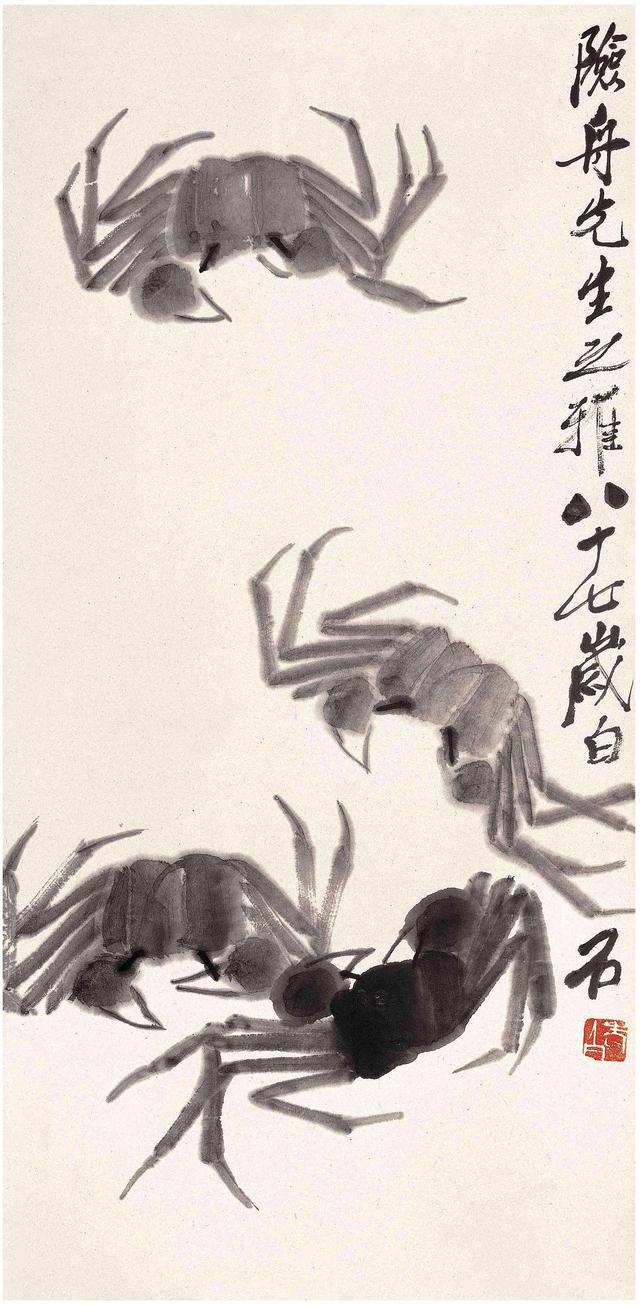 險舟先生之雅八十七歲白石